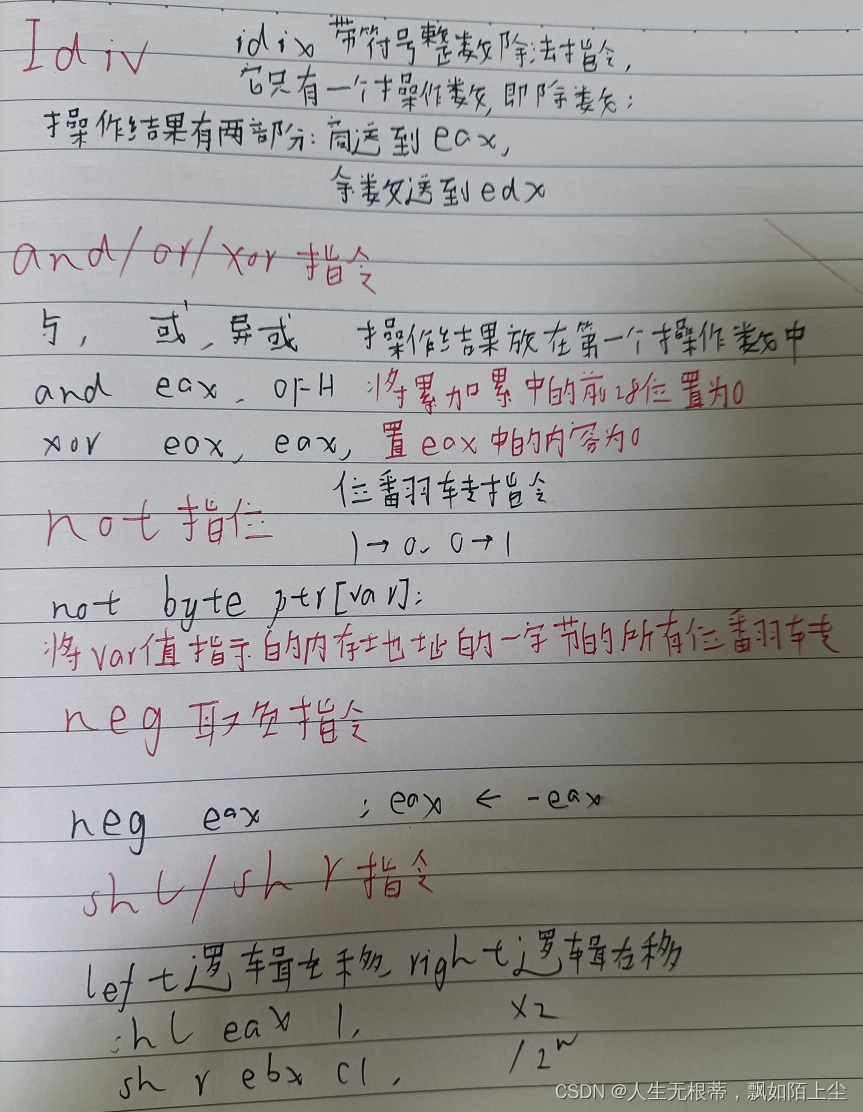 Idiv idix 带符号整数除法指令,
它只有一个操作数,即除数;
操作结果有两部分:商送到eax,
余数送到edx
and/or/xor 指令
与, 或, 异或 操作结果放在第一个操作数中
and eax, 0FH 将累加累中的前28位置为0
xor eax, eax, 置eax中的内容为0
not 指位 位翻转指令
1→0, 0→1
not byte ptr[var];
将var值指示的内存地址的一字节的所有位翻转
neg 取负指令
neg eax ; eax ← -eax
shl/shr 指令
left逻辑左移, right逻辑右移
shl eax 1, x2
shr ebx cl, /2ⁿ
CSDN @人生无根蒂，飘如陌上尘